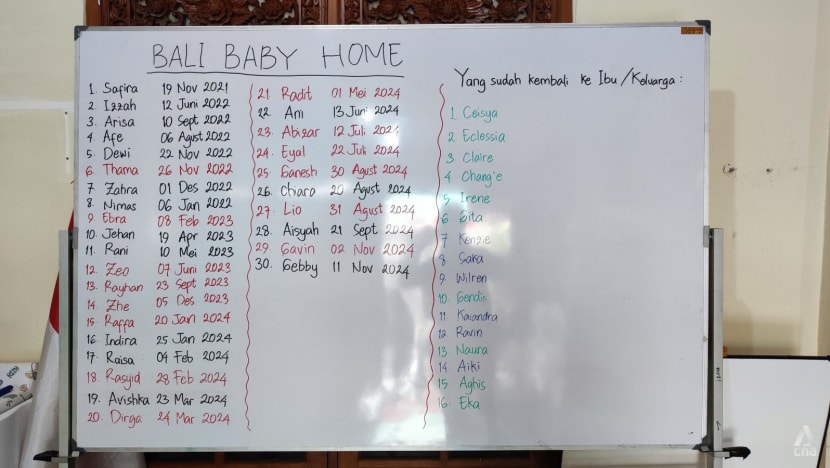 BALI BABY HOME
1. Safira 19 Nov 2021
2. Izzah 12 Juni 2022
3. Arisa 10 Sept 2022
4. Afe 06 Agust 2022
5. Dewi 22 Nov 2022
6. Thama 26 Nov 2022
7. Zahra 01 Des 2022
8. Nimas 06 Jan 2022
9. Ebra 08 Feb 2023
10. Jehan 19 Apr 2023
11. Rani 10 Mei 2023
12. Zeo 07 Juni 2023
13. Rayhan 23 Sept 2023
14. Zhe 05 Des 2023
15. Raffa 20 Jan 2024
16. Indira 25 Jan 2024
17. Raisa 04 Feb 2024
18. Rasyid 28 Feb 2024
19. Avishka 23 Mar 2024
20. Dirga 24 Mar 2024
21. Radit 01 Mei 2024
22. Am 13 Juni 2024
23. Abizar 12 Juli 2024
24. Eyal 22 Juli 2024
25. Ganesh 30 Agust 2024
26. Chiara 20 Agust 2024
27. Lio 31 Agust 2024
28. Aisyah 21 Sept 2024
29. Gavin 02 Nov 2024
30. Gebby 11 Nov 2024
Yang sudah kembali ke Ibu/Keluarga:
1 Ceisya
2 Eclessia
3 Claire
4 Chang'e
5 Irene
6 Gita
7 Kenzie
8 Saka
9 Wilren
10. Gendis
11 Kaiandra
12 Ravin
13. Naura
14. Aiki
15. Aghis
16. Eka
cna